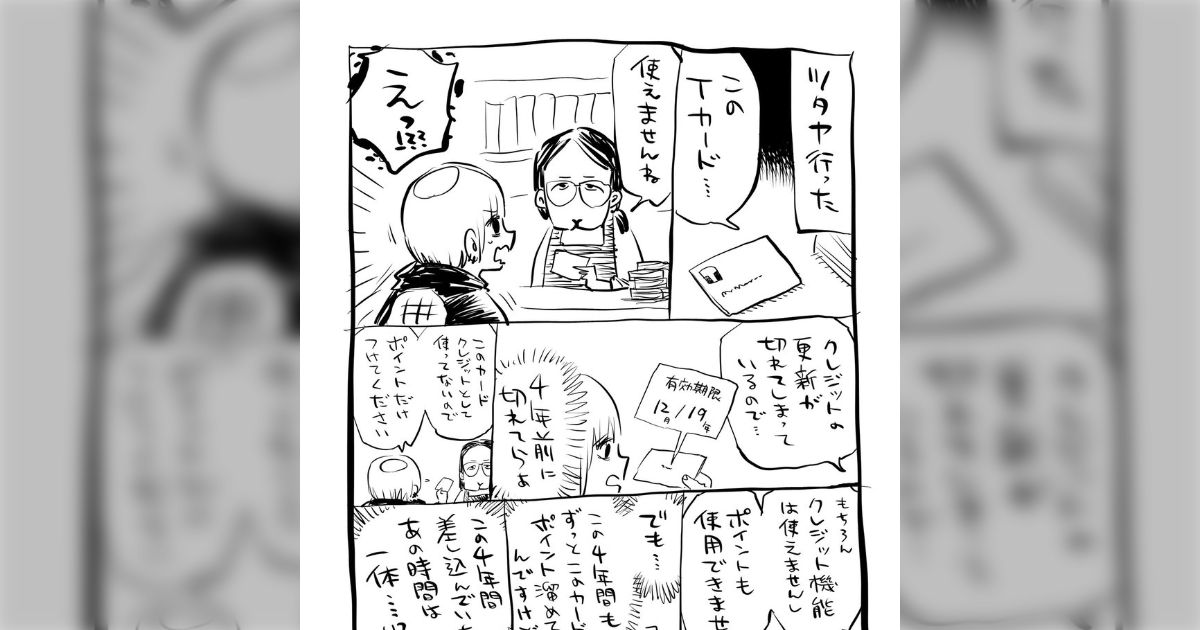 ツタヤ行った
この
Tカード…
使えませんね
えっ!!??
クレジットの
更新が
切れてしまって
いるので…
有効期限
12月/19年
4年前に
切れてらぁ
このカード
クレジットとして
使ってないので
ポイントだけ
つけてください
もちろん
クレジット機能
は使えませんし
ポイントも
使用できませ
でも…
この4年間も
ずっとこのカード
ポイント溜めて
んですけど
この4年間
差し込んでいた
あの時間は
一体…!?